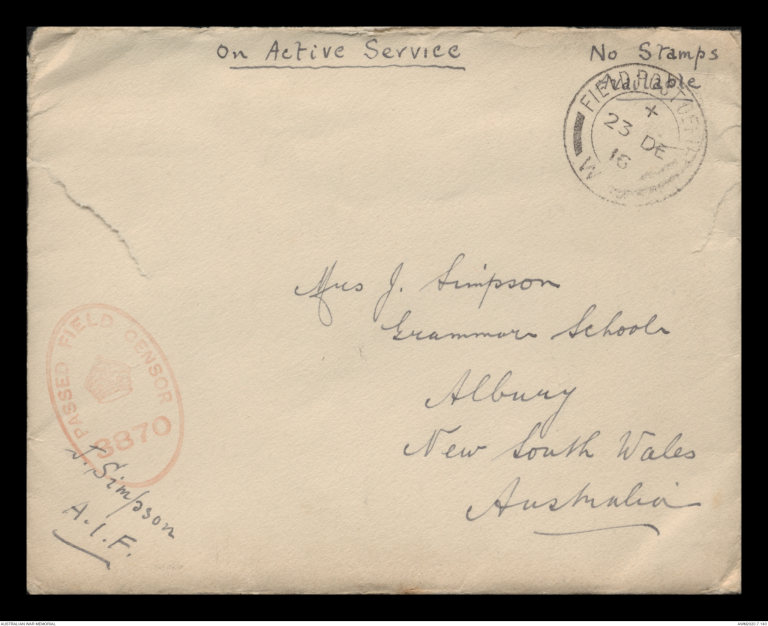 On Active Service
No Stamps
Available
FIELD POST OFFICE
23 DE
16
M
Mrs J. Simpson
Grammar School
Albury
New South Wales
Australia
PASSED FIELD CENSOR
3870
J. Simpson
A.I.F.
AUSTRALIAN WAR MEMORIAL